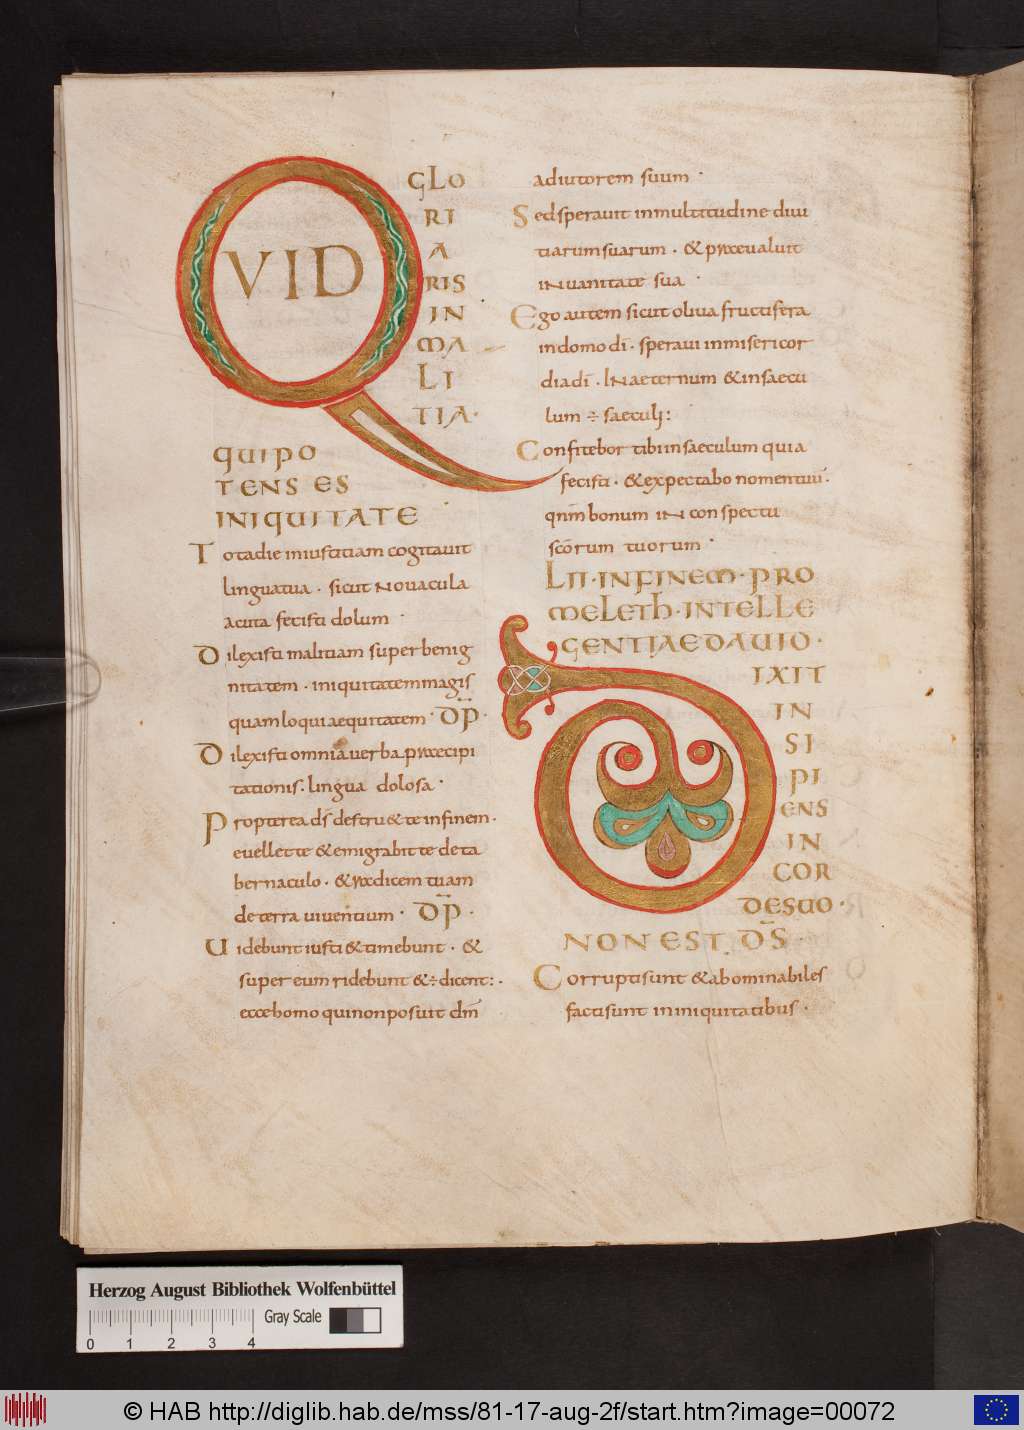 QVID
GLO
RI
A
RIS
IN
MA
LI
TIA·
QUIPO
TENS ES
INIQUITATE
Totadie iniustitiam cogitauit
linguatua · sicut Nouacula
acuta fecisti dolum ·
Dilexisti malitiam super benig
nitatem · iniquitatemmagis
quamloqui aequitatem · DP̄ ·
Dilexisti omnia uerba praecipi
tationis · lingua dolosa ·
Propterea ds̄ destru&te infinem ·
euellette &emigrabit te deta
bernaculo · &radicem tuam
deterra uiuentium · DP̄ ·
Uidebunt iusti &timebunt · &
super eum ridebunt &÷dicent: ·
ecce homo quinonposuit dm̄
adiutorem suum ·
Sedsperauit inmultitudine diui
tiarumsuarum · &praeualuit
iNuanitate sua ·
Ego autem sicut oliua fructifera
indomo dī · speraui inmisericor
diadī · INaeternum &insaecu
lum ÷ saeculi:
Confitebor tibiinsaeculum quia
fecisti · &expectabo nomentuū ·
qnm̄bonum iN conspectu
scōrum tuorum ·
LII · INFINEM · PRO
MELETH · INTELLE
GENTIAEDAUID ·
DIXIT
IN
SI
PI
ENS
IN
COR
DESUO ·
NON EST DS̄ ·
Corruptisunt &abominabiles
factisunt ininiquitatibus ·
Herzog August Bibliothek Wolfenbüttel
Gray Scale
0 1 2 3 4
© HAB http://diglib.hab.de/mss/81-17-aug-2f/start.htm?image=00072